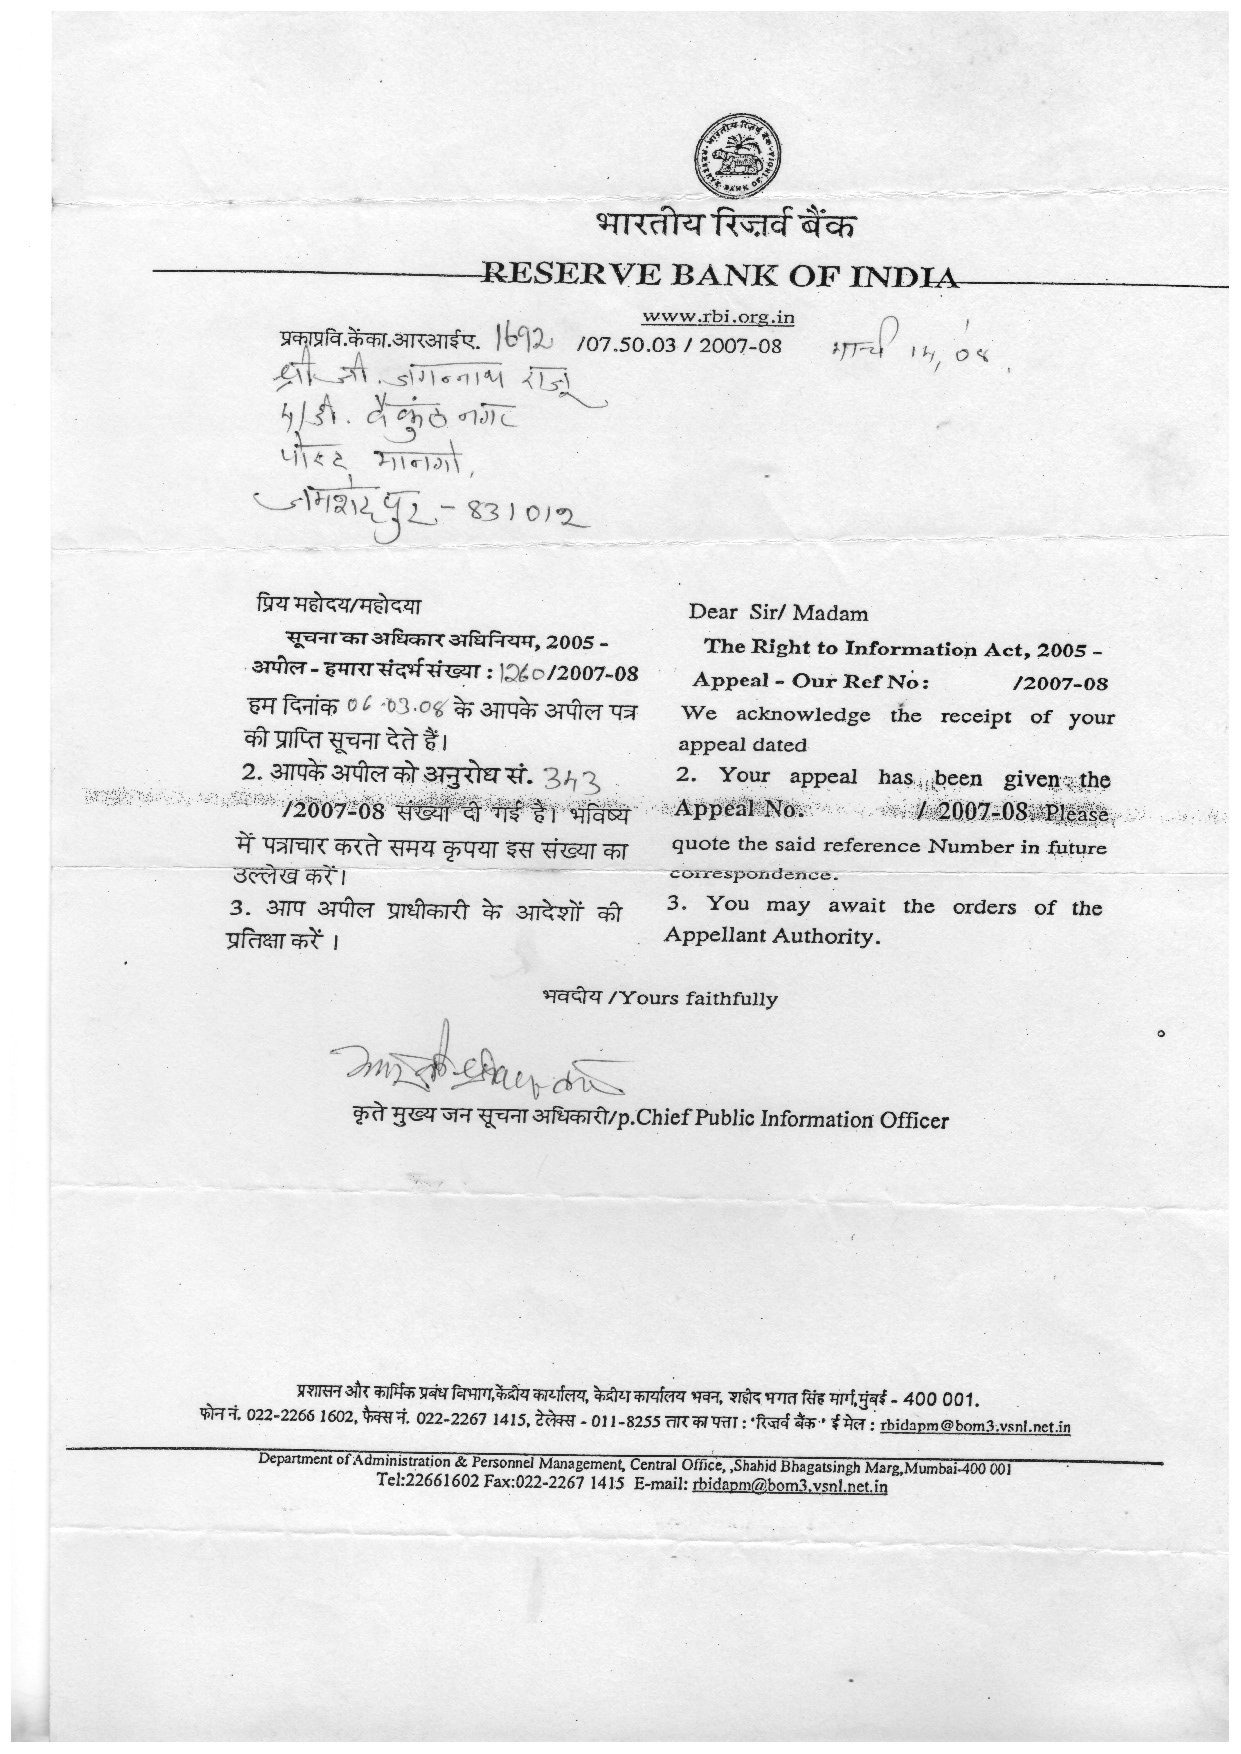 भारतीय रिज़र्व बैंक
RESERVE BANK OF INDIA
www.rbi.org.in
प्रकाप्रवि.केंका.आरआईए. 1692 /07.50.03 / 2007-08 मार्च 14, '08.
श्री जी. जगन्नाथ राजू
5/डी. वैकुंठ नगर
पोस्ट मानगो,
जमशेदपुर - 831012
प्रिय महोदय/महोदया
सूचना का अधिकार अधिनियम, 2005 -
अपील - हमारा संदर्भ संख्या : 1260/2007-08
हम दिनांक 06.03.08 के आपके अपील पत्र
की प्राप्ति सूचना देते हैं।
2. आपके अपील को अनुरोध सं. 343
/2007-08 संख्या दी गई है। भविष्य
में पत्राचार करते समय कृपया इस संख्या का
उल्लेख करें।
3. आप अपील प्राधीकारी के आदेशों की
प्रतिक्षा करें ।
Dear Sir/ Madam
The Right to Information Act, 2005 -
Appeal - Our Ref No: /2007-08
We acknowledge the receipt of your
appeal dated
2. Your appeal has been given the
Appeal No. / 2007-08. Please
quote the said reference Number in future
correspondence.
3. You may await the orders of the
Appellant Authority.
भवदीय /Yours faithfully
कृते मुख्य जन सूचना अधिकारी/p.Chief Public Information Officer
प्रशासन और कार्मिक प्रबंध विभाग,केंद्रीय कार्यालय, केंद्रीय कार्यालय भवन, शहीद भगत सिंह मार्ग,मुंबई - 400 001.
फोन नं. 022-2266 1602, फैक्स नं. 022-2267 1415, टेलेक्स - 011-8255 तार का पत्ता : 'रिजर्व बैंक' ई मेल : rbidapm@bom3.vsnl.net.in
Department of Administration & Personnel Management, Central Office, ,Shahid Bhagatsingh Marg,Mumbai-400 001
Tel:22661602 Fax:022-2267 1415 E-mail: rbidapm@bom3.vsnl.net.in